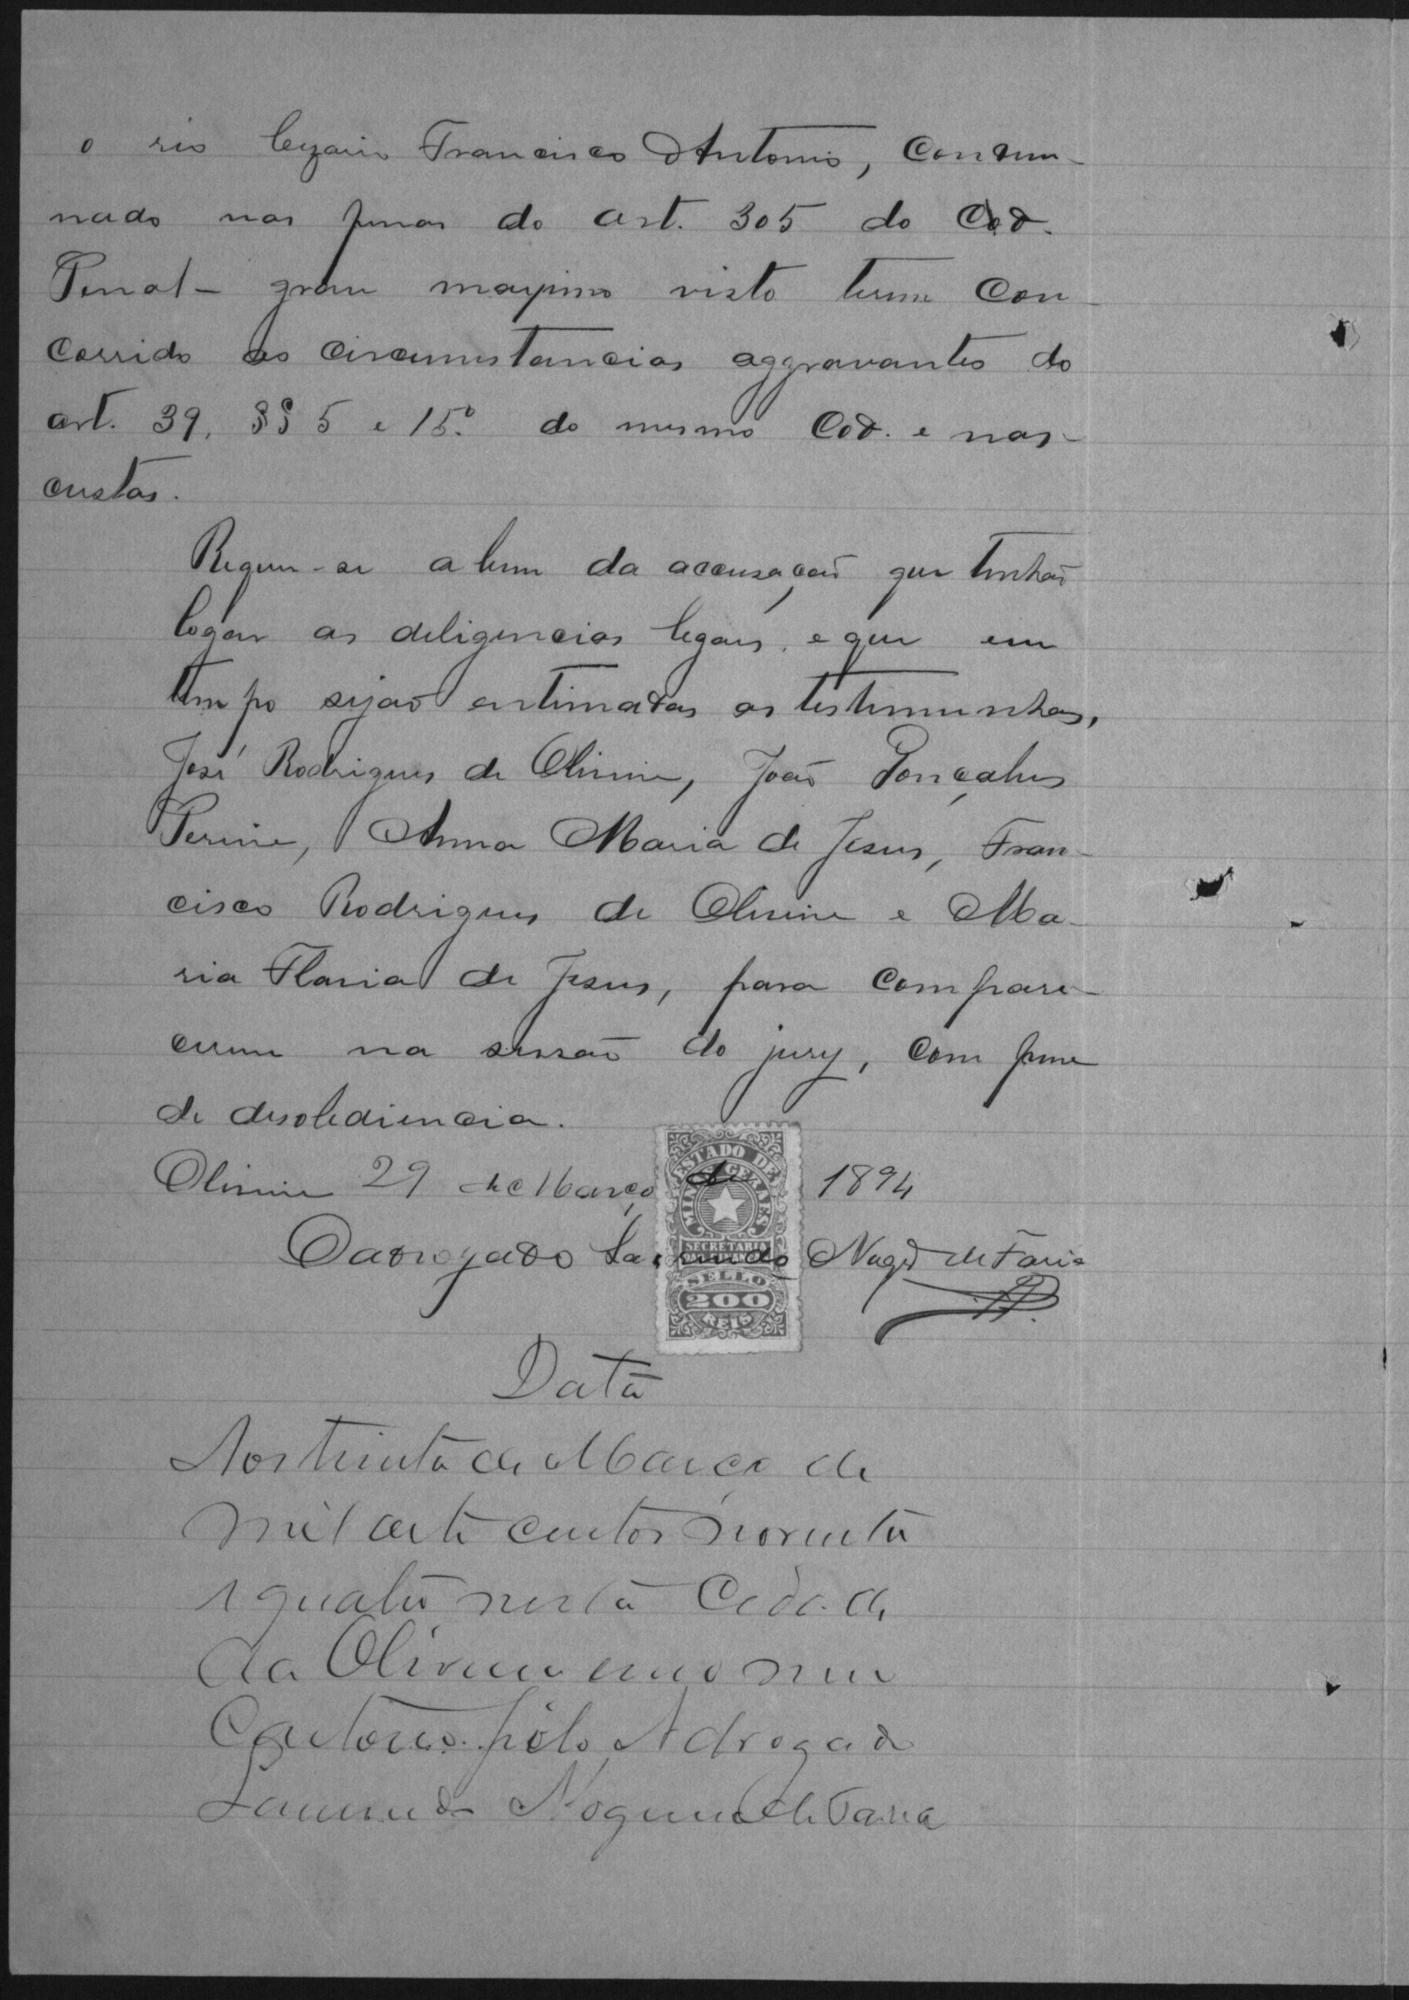 o reo Cezario Francisco Antonio, condem-
nado nas penas do art. 305 do Cod.
Penal - grau maximo visto terem con-
corrido as circumstancias aggravantes do
art. 39, §§ 5 e 15º do mesmo Cod. e nas
custas.
Requer-se a bem da accusação que tenhão
logar as deligencias legaes, e que em
tempo sejão entimadas as testemunhas,
José Rodrigues de Oliveira, João Gonçalves
Pereira, Anna Maria de Jesus, Fran-
cisco Rodrigues de Oliveira e Ma-
ria Flavia de Jesus, para compare-
cerem na sessão do jury, com pena
de desobediencia.
Oliveira 29 de Março de 1894
O advogado Nogª de Faria
ESTADO DE
MINAS GERAES
SECRETARIA
DAS FINANÇAS
SELLO
200
REIS
Data
Aos trinta de Março de
mil oito centos noventa
e quatro nesta Cidade
da Oliveira em meu
Cartorio pelo Advogado
Nogueira de Faria